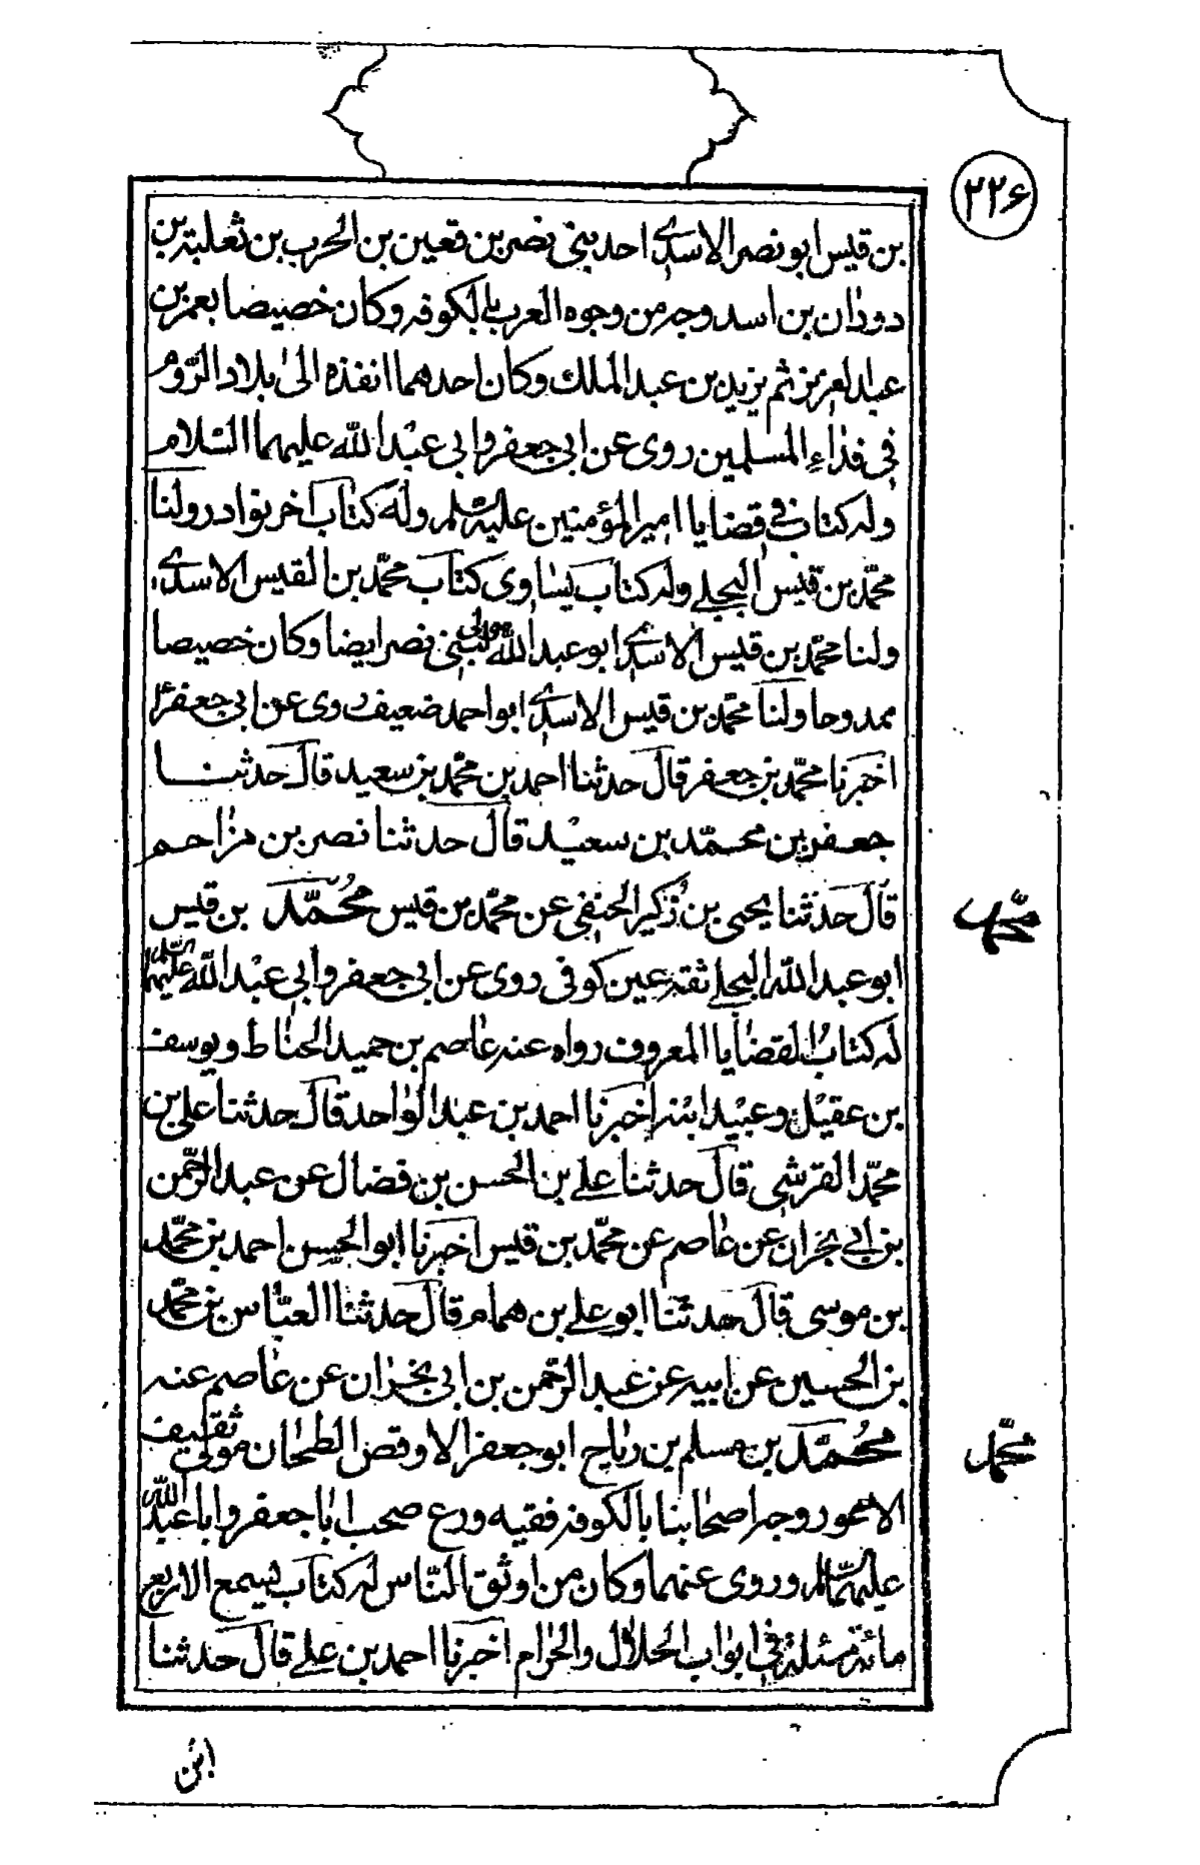 ٢٢٦
بن قيس ابو نصر الاسدي احد بني نصر بن قعين بن الحرب بن ثعلبة بن
دودان بن اسد وجه من وجوه العرب بالكوفه وكان خصيصا بعمر بن
عبد العزيز ثم يزيد بن عبد الملك وكان احدهما انفذه الى بلاد الرّوم
في فداء المسلمين روى عن ابي جعفر وابي عبْد اللّه عليهما السّلام
وله كتاب في قضايا امير المؤمنين عليه السّلم وله كتاب اخر نوادر ولنا
محمّد بن قيس البجلي وله كتاب يساوى كتاب محمّد بن القيس الاسدي
ولنا محمّد بن قيس الاسدي ابو عبد اللّه مولى لبني نصر ايضا وكان خصيصا
ممدوحا ولنا محمّد بن قيس الاسدي ابو احمد ضعيف روى عن ابي جعفر ع
اخبرنا محمّد بن جعفر قال حدثنا احمد بن محمّد بن سعيد قال حدثنا
جعفر بن محمّد بن سعيْد قال حدثنا نصر بن مزاحم
قال حدثنا يحيى بن زُكير الحنفي عن محمّد بن قيس محُمّد بن قيس
محمّد
ابو عبد اللّه البجلي ثقة عين كوفى روى عن ابي جعفر وابي عبْد اللّه عليهما السّلم
له كتابُ القضايا المعروف رواه عنه عاصم بن حميد الحنّاط ويوسف
بن عقيْل وعبيْد ابنه اخبرنا احمد بن عبْد الواحد قال حدثنا علي بن
محمّد القرشي قال حدثنا علي بن الحسن بن فضال عن عبد الرّحمن
بن ابي نجران عن عاصم عن محمّد بن قيس اخبرنا ابو الحسن احمد بن محمّد
بن موسى قال حدثنا ابو علي بن همام قال حدثنا العبّاس بن محمّد
بن الحسين عن ابيه عن عبد الرّحمن بن ابي نجران عن عاصم عنه
محُمّد بن مسلم بن رباح ابو جعفر الاوقص الطحان مولى ثقيف
محمّد
الاعور وجه اصحابنا بالكوفه فقيه ورع صحب ابا جعفر وابا عبد اللّه
عليهما السّلم وروى عنهما وكان من اوثق النّاس له كتاب يسمى الاربع
مائة مسئلة في ابواب الحلال والحرام اخبرنا احمد بن علي قال حدثنا
ابن